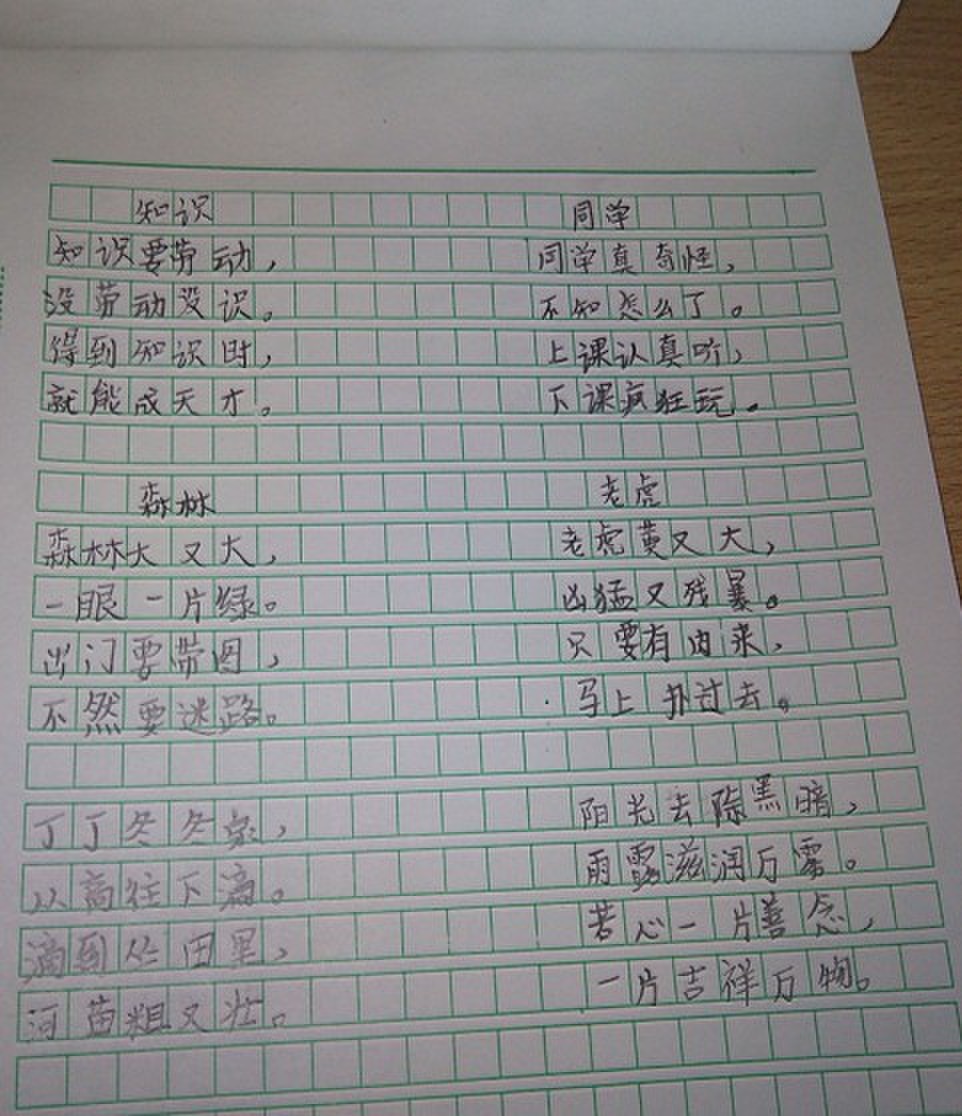 知识
知识要劳动，
没劳动没识。
得到知识时，
就能成天才。
同学
同学真奇怪，
不知怎么了。
上课认真听，
下课疯狂玩。
森林
森林大又大，
一眼一片绿。
出门要带图，
不然要迷路。
老虎
老虎黄又大，
凶猛又残暴。
只要有肉来，
马上扑过去。
丁丁冬冬泉，
以高往下滴。
滴到丛田里，
河苗粗又壮。
阳光去除黑暗，
雨露滋润万灵。
若心一片善念，
一片吉祥万物。